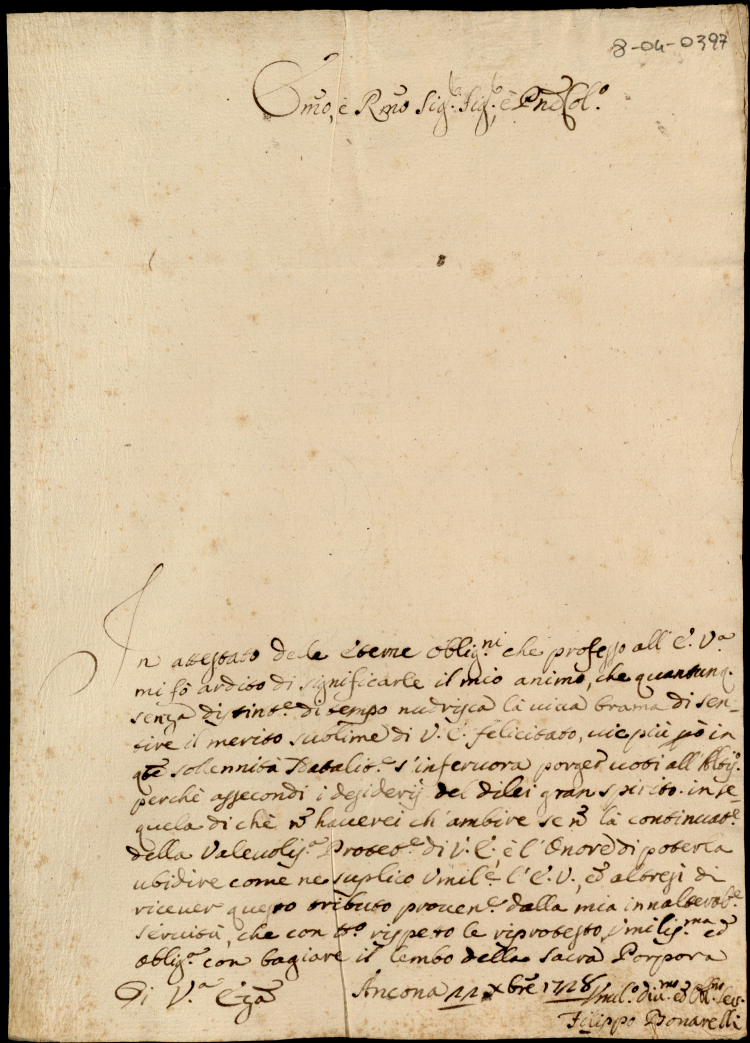 8-04-0397
Em̃o, è Rm̃o Sig.r Sig.r, è Pne Col.o
In attestato dele Eterne oblig.ni che professo all'E. V.a
mi fò ardito di significarle il mio animo, che quantunq.
senza distint.e di tempo nudrisca la viva brama di sen-
tire il merito sublime di V. E. felicitato, vie più però in
q̃te solennità Natalit.e s'infervora porger voti all'Altis.o
perchè assecondi i desiderij del dilei gran spirito. in se-
quela di chè ñ haverei ch'ambire se ñ la continuat.e
della Valevolis.a Protet.e di V. E., è l'Onore di poterla
ubidire come ne suplico Vmil.e l'E. V., ed altresi di
ricever questo tributo proven.e dalla mia innalterab.e
servitù, che con tt.o rispeto le riprotesto Vmilis.ma ed
oblig.a con bagiare il lembo della sacra Porpora
Di V.a Eza
Ancona 22 Xbre 1728
Vmil.o div.mo ed Obl.mo Ser.
Filippo Bonarelli